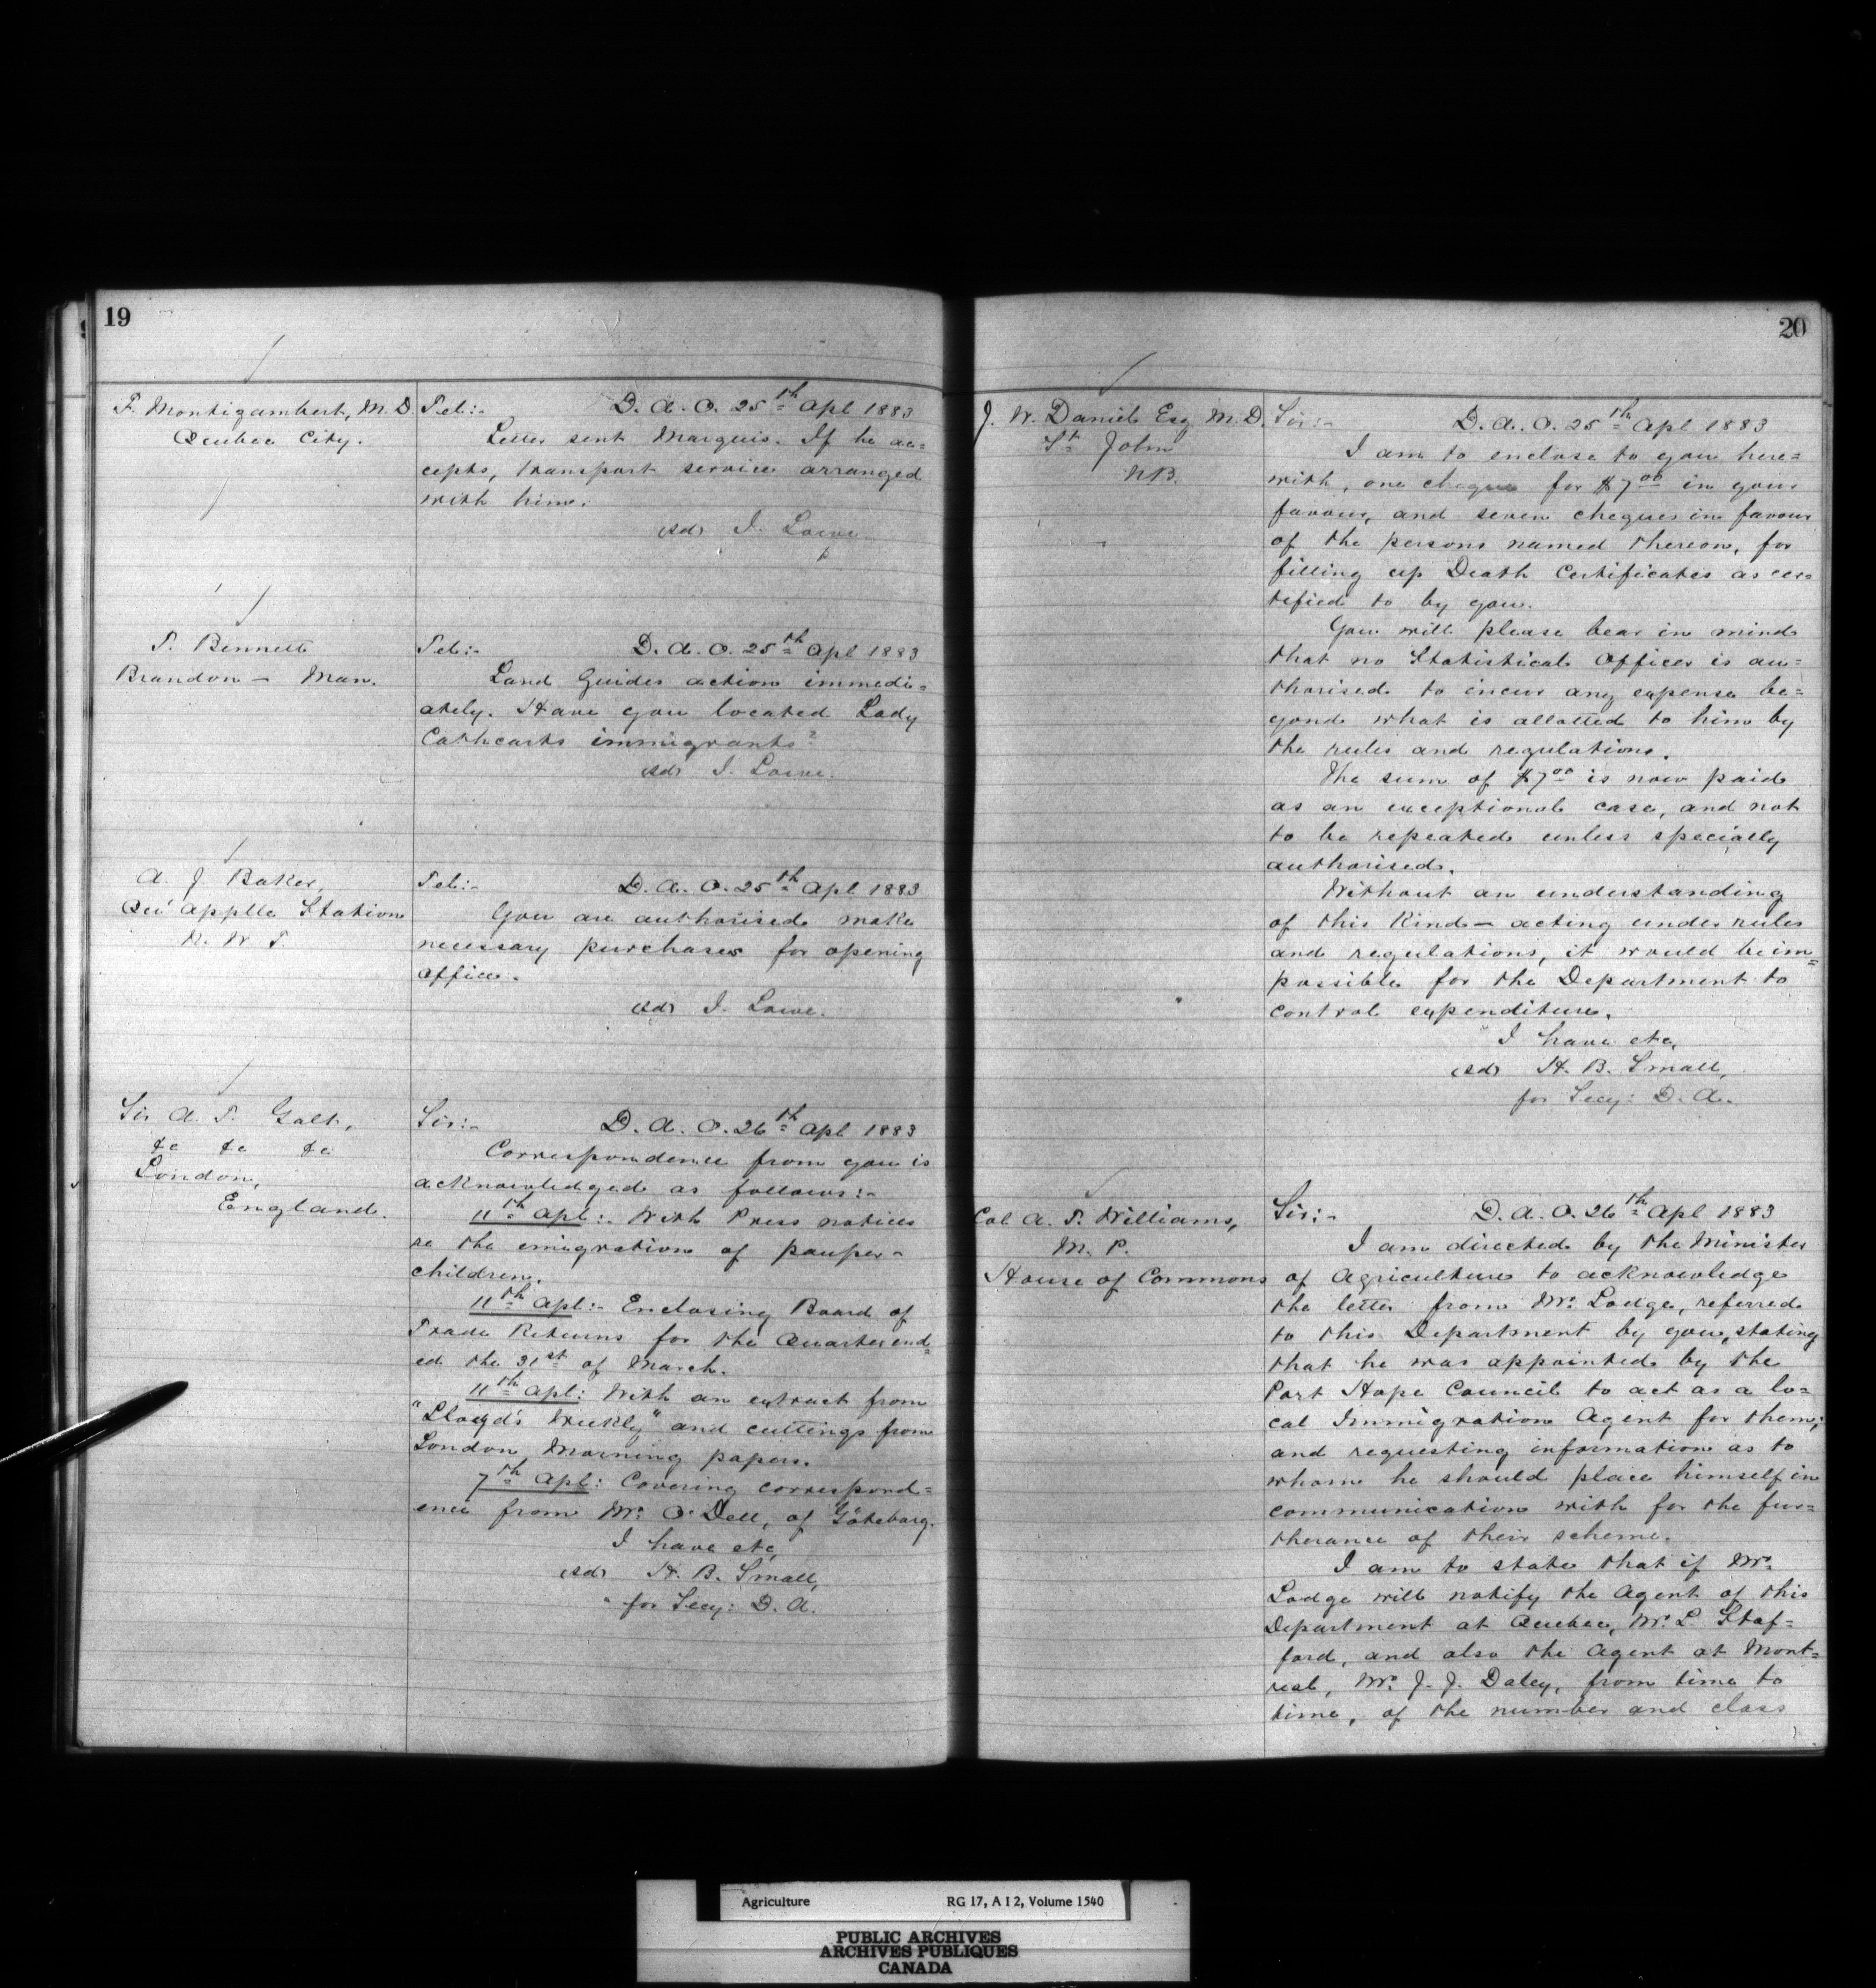 19
F. Montizambert, M.D.
Quebec City.
Tel:- D. A. O. 25th Apl 1883
Letter sent Marquis. If he ac=
cepts, transport service arranged
with him.
(sd) J. Lowe
T. Bennett
Brandon - Man.
Tel:- D. A. O. 25th Apl 1883
Land Guides action immedi=
ately. Have you located Lady
Cathcarts immigrants?
(sd) J. Lowe.
A. J. Baker,
Qu'Applle Station
N. W. T.
Tel:- D. A. O. 25th Apl 1883
You are authorised make
necessary purchases for opening
office.
(sd) J. Lowe.
Sir A. T. Galt,
&c &c &c
London,
England.
Sir:- D. A. O. 26th Apl 1883
Correspondence from you is
acknowledged as follows:-
11th Apl:- With Press notices
re the emigration of pauper-
children.
11th Apl:- Enclosing Board of
Trade Returns for the Quarter end=
ed the 31st of March.
11th Apl: With an extract from
"Lloyd's Weekly" and cuttings from
London Morning papers.
7th Apl: Covering correspond=
ence from Mr. O'Dell, of Göteborg.
I have etc,
(sd) H. B. Small,
for Secy: D. A.
20
J. W. Daniel Esq M.D.
St. John
N.B.
Sir:- D. A. O. 25th Apl 1883
I am to enclose to you here=
with, one cheque for $7.00 in your
favour, and seven cheques in favour
of the persons named thereon, for
filling up Death Certificates as cer=
tified to by you.
You will please bear in mind
that no Statistical Officer is au=
thorised to incur any expense be=
yond what is allotted to him by
the rules and regulations.
The sum of $7.00 is now paid
as an exceptional case, and not
to be repeated unless specially
authorised.
Without an understanding
of this kind - acting under rules
and regulations, it would be im=
possible for the Department to
control expenditure.
I have etc,
(sd) H. B. Small,
for Secy: D. A.
Col A. T. Williams,
M. P.
House of Commons
Sir:- D. A. O. 26th Apl 1883
I am directed by the Minister
of Agriculture to acknowledge
the letter from Mr. Lodge, referred
to this Department by you, stating
that he was appointed by the
Port Hope Council to act as a lo=
cal Immigration Agent for them;
and requesting information as to
whom he should place himself in
communication with for the fur=
therance of their scheme.
I am to state that if Mr.
Lodge will notify the Agent of this
Department at Quebec, Mr. L Staf=
ford, and also the Agent at Mont=
real, Mr. J. J. Daley, from time to
time, of the number and class
Agriculture RG 17, A I 2, Volume 1540
PUBLIC ARCHIVES
ARCHIVES PUBLIQUES
CANADA